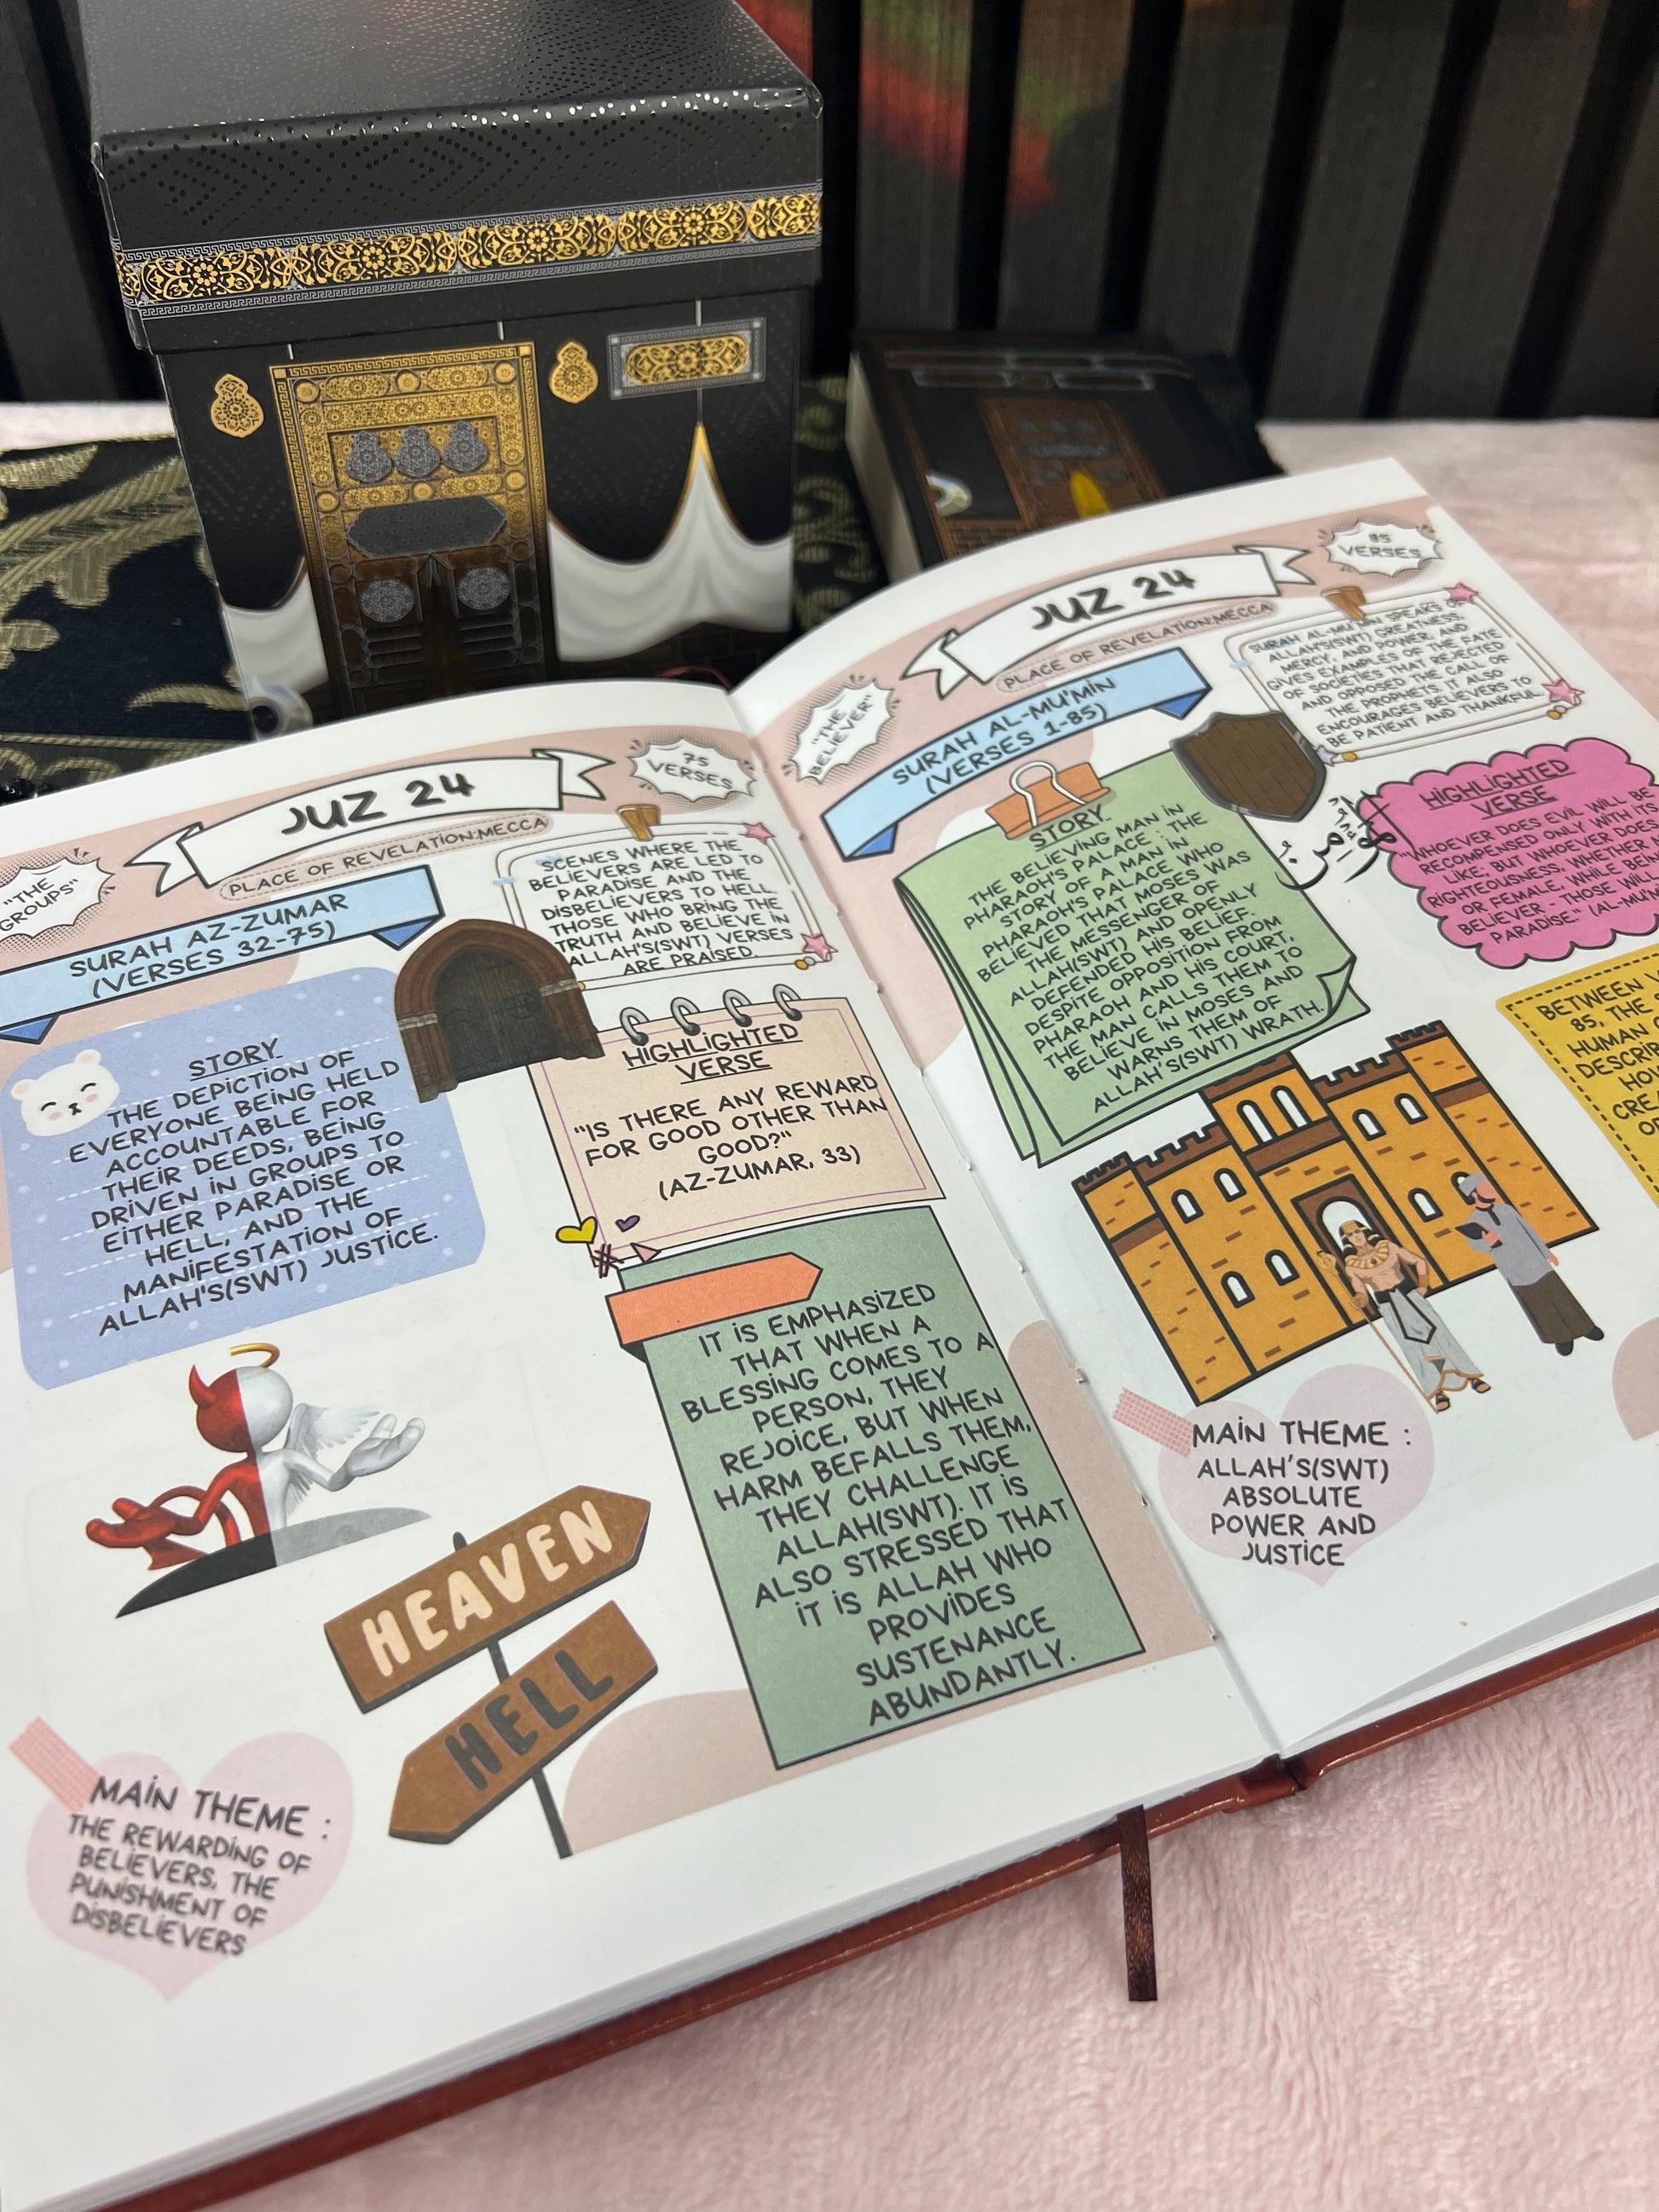 "THE
GROUPS"
JUZ 24
PLACE OF REVELATION:MECCA
75
VERSES
SURAH AZ-ZUMAR
(VERSES 32-75)
SCENES WHERE THE
BELIEVERS ARE LED TO
PARADISE AND THE
DISBELIEVERS TO HELL.
THOSE WHO BRING THE
TRUTH AND BELIEVE IN
ALLAH'S(SWT) VERSES
ARE PRAISED.
STORY
THE DEPICTION OF
EVERYONE BEING HELD
ACCOUNTABLE FOR
THEIR DEEDS, BEING
DRIVEN IN GROUPS TO
EITHER PARADISE OR
HELL, AND THE
MANIFESTATION OF
ALLAH'S(SWT) JUSTICE.
HIGHLIGHTED
VERSE
"IS THERE ANY REWARD
FOR GOOD OTHER THAN
GOOD?"
(AZ-ZUMAR, 33)
IT IS EMPHASIZED
THAT WHEN A
BLESSING COMES TO A
PERSON, THEY
REJOICE, BUT WHEN
HARM BEFALLS THEM,
THEY CHALLENGE
ALLAH(SWT). IT IS
ALSO STRESSED THAT
IT IS ALLAH WHO
PROVIDES
SUSTENANCE
ABUNDANTLY.
HEAVEN
HELL
MAIN THEME :
THE REWARDING OF
BELIEVERS, THE
PUNISHMENT OF
DISBELIEVERS
"THE
BELIEVER"
JUZ 24
PLACE OF REVELATION:MECCA
85
VERSES
SURAH AL-MU'MIN
(VERSES 1-85)
SURAH AL-MU'MIN SPEAKS OF
ALLAH'S(SWT) GREATNESS,
MERCY, AND POWER, AND
GIVES EXAMPLES OF THE FATE
OF SOCIETIES THAT REJECTED
AND OPPOSED THE CALL OF
THE PROPHETS. IT ALSO
ENCOURAGES BELIEVERS TO
BE PATIENT AND THANKFUL.
STORY
THE BELIEVING MAN IN
PHARAOH'S PALACE: THE
STORY OF A MAN IN
PHARAOH'S PALACE WHO
BELIEVED THAT MOSES WAS
THE MESSENGER OF
ALLAH(SWT) AND OPENLY
DEFENDED HIS BELIEF.
DESPITE OPPOSITION FROM
PHARAOH AND HIS COURT,
THE MAN CALLS THEM TO
BELIEVE IN MOSES AND
WARNS THEM OF
ALLAH'S(SWT) WRATH.
HIGHLIGHTED
VERSE
"WHOEVER DOES EVIL WILL BE
RECOMPENSED ONLY WITH ITS
LIKE; BUT WHOEVER DOES
RIGHTEOUSNESS, WHETHER
OR FEMALE, WHILE BEING
BELIEVER - THOSE WILL
PARADISE." (AL-MU'M
BETWEEN
85, THE
HUMAN
MAIN THEME :
ALLAH'S(SWT)
ABSOLUTE
POWER AND
JUSTICE